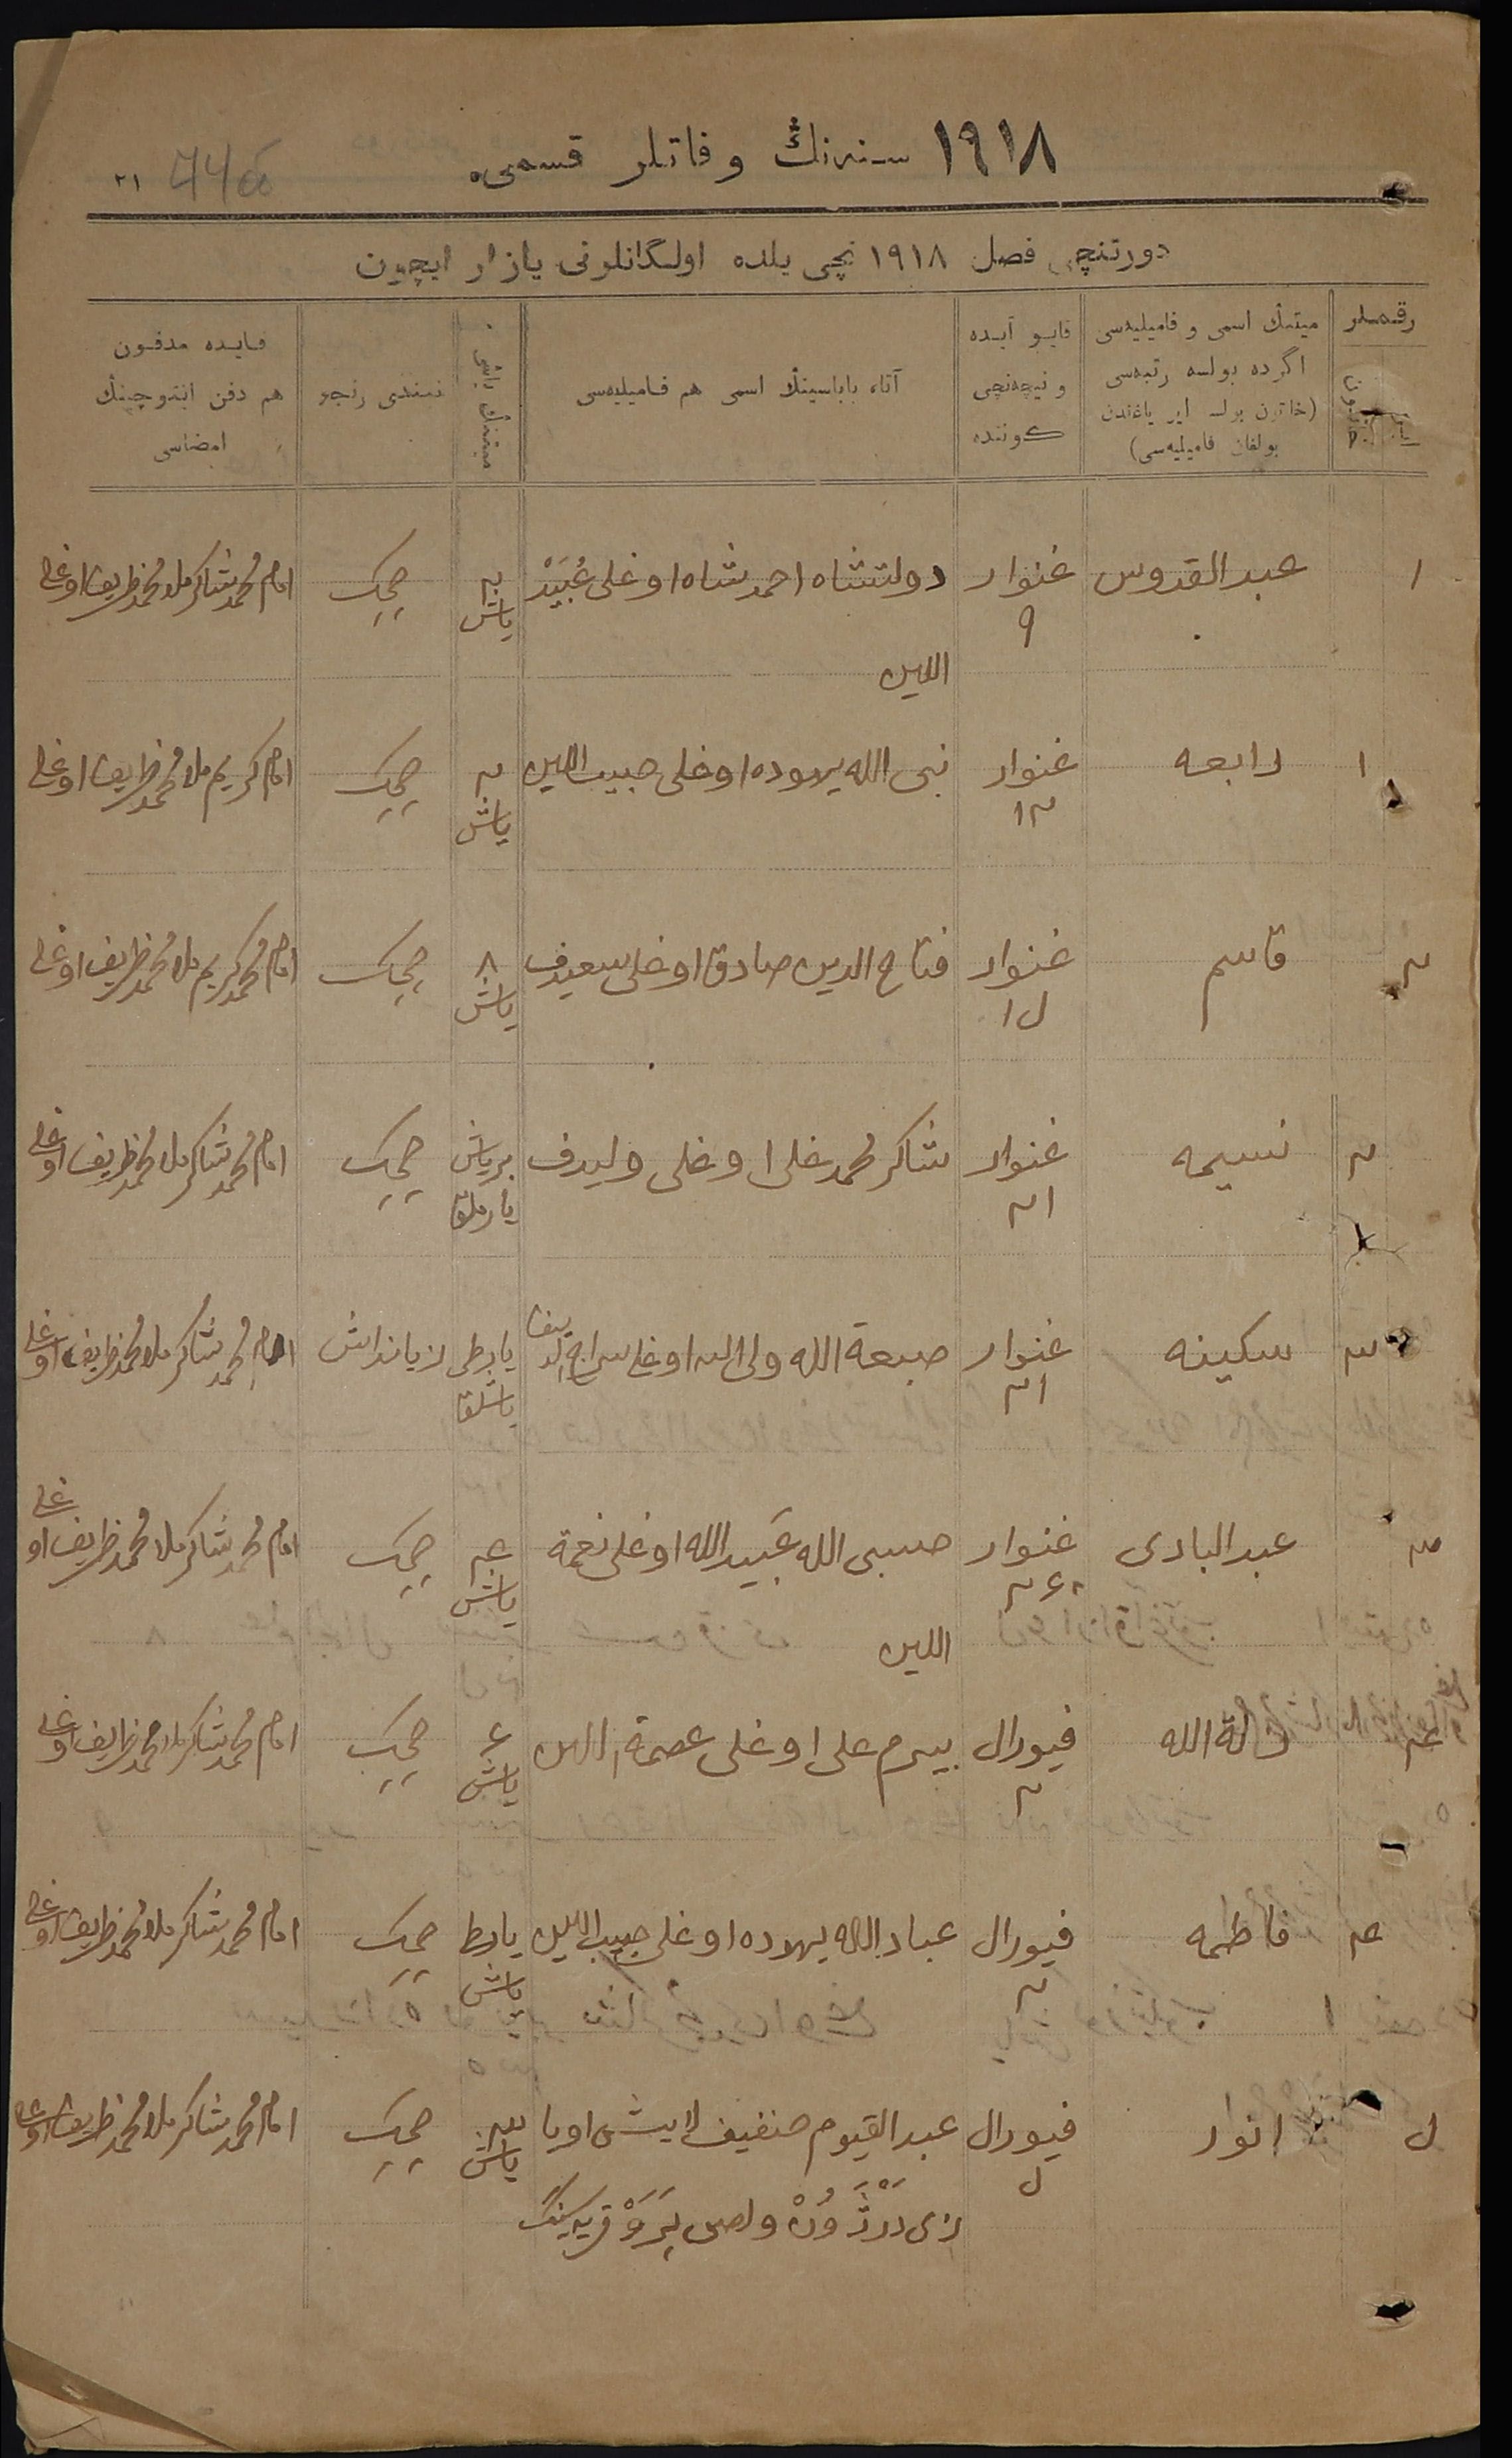 ١٩١٨ سنەنڭ وفاتلر قسمی.
٢١
دورتنچی فصل ١٩١٨ نچی یلده اولگانلرنی یازار ایچون
رقملر
میتنڭ اسمی و فامیلیەسی
اگرده بولسه رتبەسی
(خاتون بولسه ایر یاغندن
بولغان فامیلیەسی)
قایو آیده
و نیچەنچی
کوننده
آتا، باباسینڭ اسمی هم فامیلیەسی
میتنڭ یاشی
نیندی رنجو
قایده مدفون
هم دفن ایتدوچینڭ
امضاسی
١ عبدالقدوس غنوار ٩ دولتشاه احمدشاه اوغلی عُبَیْد الدین ٣ یاش چیچک امام محمدشاکر ملا محمدظریف اوغلی
١ رابعه غنوار ١٢ نبی الله یهوده اوغلی حبیب الدین ٢ یاش چیچک امام کریم ملا محمدظریف اوغلی
٢ قاسم غنوار فتاح الدین صادق اوغلی سعیدف ٨ یاش چیچک امام محمدکریم ملا محمدظریف اوغلی
٢ نسیمه غنوار ٢١ شاکر محمدعلی اوغلی ولیدف بر یاش یارملق چیچک امام محمدشاکر ملا محمدظریف اوغلی
٣ سکینه غنوار ٢١ صبعة الله ولی الله اوغلی سراج الدینف یارطی یاشلق امام محمدشاکر ملا محمدظریف اوغلی
٣ عبدالباری غنوار ٢٤ حسبی الله عَبیدالله اوغلی نعمة الدین یاش چیچک امام محمدشاکر ملا محمدظریف اوغلی
٤ الله فیورال ٢ بیرم علی اوغلی عصمة الدین ٤ یاش چیچک امام محمدشاکر ملا محمدظریف اوغلی
٤ فاطمه فیورال ٢ عبادالله یهوده اوغلی حبیب الدین یارطی یاش چیچک امام محمدشاکر ملا محمدظریف اوغلی
انوار فیورال عبدالقیوم حنفیف یاش چیچک امام محمدشاکر ملا محمدظریف اوغلی